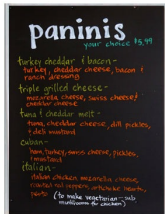 paninis
your choice $5.99
turkey cheddar & bacon -
turkey, cheddar cheese, bacon &
ranch dressing
triple grilled cheese -
mozzarella cheese, swiss cheese &
cheddar cheese
tuna & cheddar melt -
tuna, cheddar cheese, dill pickles,
& deli mustard
cuban -
ham, turkey, bacon, cheese, pickles,
& mustard
italian -
italian chicken, mozzarella cheese,
roasted red peppers, artichoke hearts,
pesto
(to make vegetarian - sub
mushrooms for chicken)